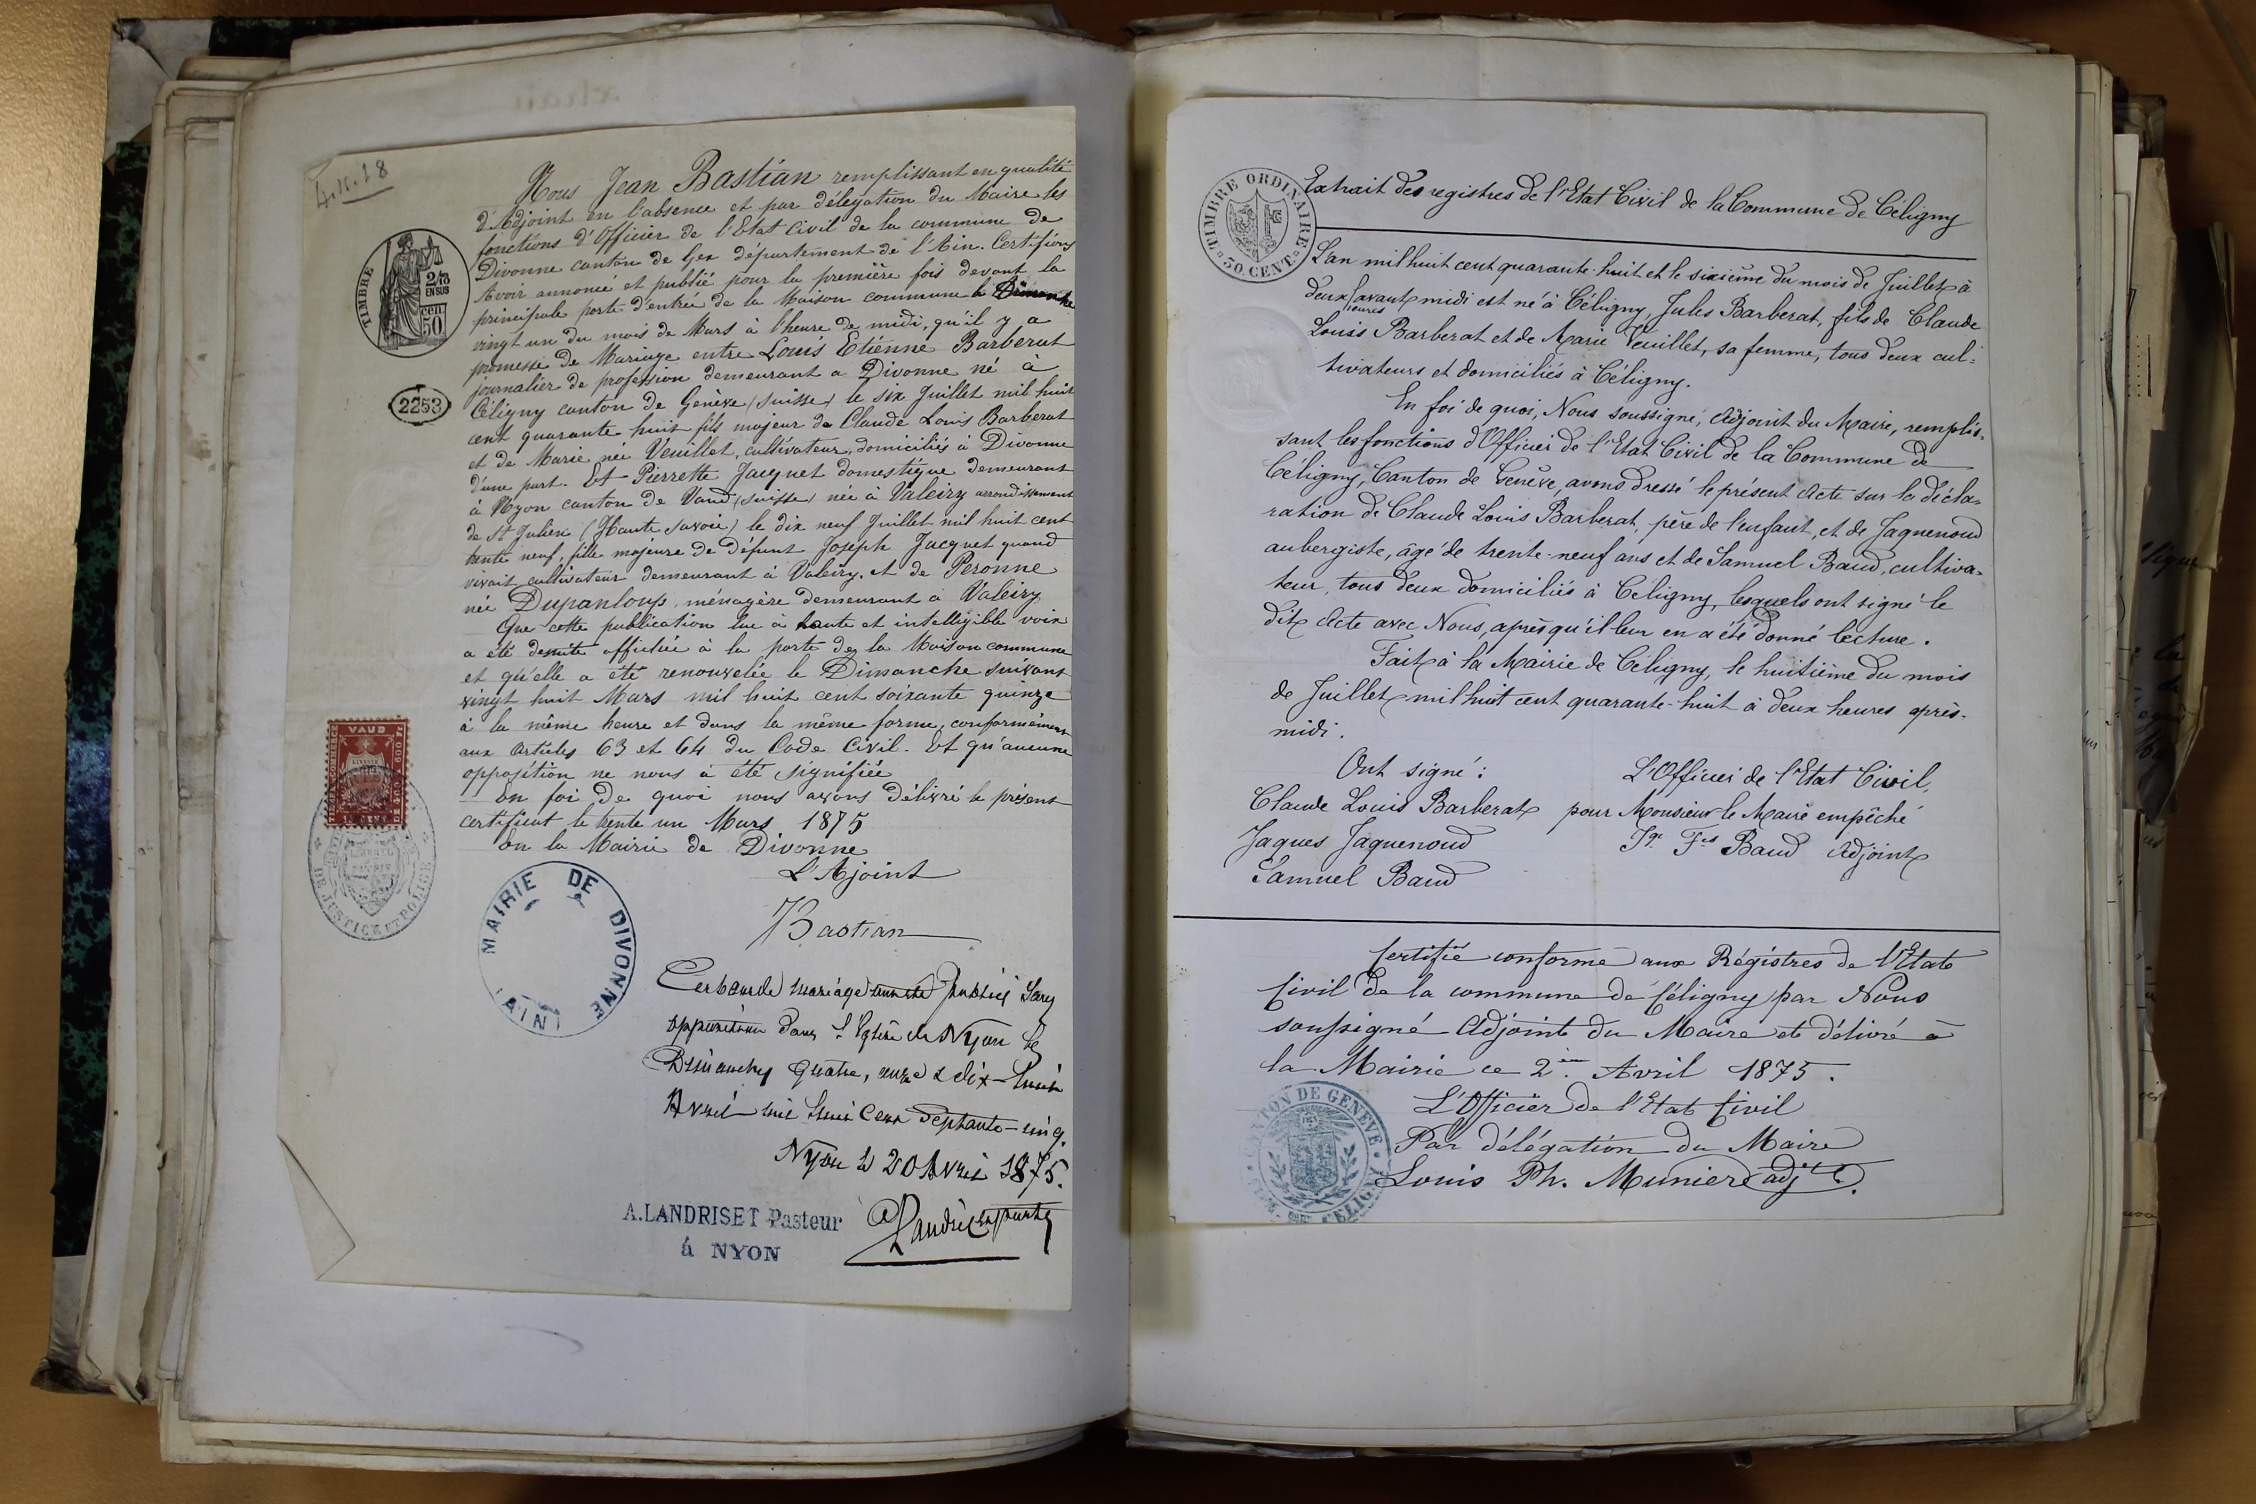 4.11.18
Nous Jean Bastian remplissant en qualité
d'Adjoint en l'absence et par délégation du Maire les
fonctions d'Officier de l'Etat Civil de la commune de
Divonne canton de Gex département de l'Ain. Certifions
Avoir annoncé et publié pour la première fois devant la
principale porte d'entrée de la Maison commune le Dimanche
vingt un du mois de Mars à l'heure de midi, qu'il y a
promesse de Mariage entre Louis Etiénne Barberat
journalier de profession demeurant a Divonne né à
Céligny canton de Genève (suisse) le six Juillet mil huit
cent quarante huit fils majeur de Claude Louis Barberat
et de Marie née Veuillet, cultivateur, domiciliés à Divonne
d'une part. Et Pierrette Jacquet domestique demeurant
à Nyon canton de Vaud (suisse) née à Valeiry arrondissement
de St Julien (Haute savoie) le dix neuf Juillet mil huit cent
trente neuf, fille majeure de Défunt Joseph Jacquet quand
vivait cultivateur demeurant à Valeiry, et de Péronne
née Dupanloup, ménagère demeurant à Valeiry
Que cette publication lue à haute et intelligible voix
a été de suite affichée à la porte de la Maison commune
et qu'elle a été renouvelée le Dimanche suivant
vingt huit Mars mil huit cent soixante quinze
à la même heure et dans la même forme, conformément
aux Articles 63 et 64 du Code Civil. Et qu'aucune
opposition ne nous à été signifiée
En foi de quoi nous avons délivré le présent
certificat le trente un Mars 1875
En la Mairie de Divonne
L'Ajoint
Bastian
TIMBRE
2/10
EN SUS
50
cen
2253
VAUD
DE JUSTICE ET POLICE
MAIRIE DE DIVONNE
(AIN)
mariage publié sans
opposition dans l'Eglise de Nyon les
Dimanches quatre, onze & dix-huit
Avril mil huit cent septante-cinq.
Nyon le 20 Avril 1875.
A. LANDRISET Pasteur
à NYON
TIMBRE ORDINAIRE
50 CENT.
Extrait des registres de l'Etat Civil de la Commune de Céligny
L'an mil huit cent quarante-huit et le sixième du mois de Juillet à
deux heures avant midi est né à Céligny, Jules Barberat, fils de Claude
Louis Barberat et de Marie Veuillet, sa femme, tous deux cul-
tivateurs et domiciliés à Céligny.
En foi de quoi, Nous soussigné, Adjoint du Maire, remplis-
sant les fonctions d'Officier de l'Etat Civil de la Commune de
Céligny, Canton de Genève, avons dressé le présent Acte sur la décla-
ration de Claude Louis Barberat, père de l'enfant, et de Jaquenoud
aubergiste, âgé de trente-neuf ans et de Samuel Baud, cultiva-
teur, tous deux domiciliés à Céligny, lesquels ont signé le
dit Acte avec Nous, après qu'il leur en a été donné lecture.
Fait à la Mairie de Céligny, le huitième du mois
de Juillet mil huit cent quarante-huit à deux heures après-
midi.
Ont signé: L'Officier de l'Etat Civil,
Claude Louis Barberat pour Monsieur le Maire empêché
Jaques Jaquenoud Jn Fs Baud Adjoint
Samuel Baud
Certifié conforme aux Régistres de l'Etat
Civil de la commune de Céligny par Nous
soussigné Adjoint du Maire et délivré à
la Mairie ce 2ème Avril 1875.
L'Officier de l'Etat Civil
Par délégation du Maire
Louis Ph. Munier adjt
CANTON DE GENEVE
CÉLIGNY